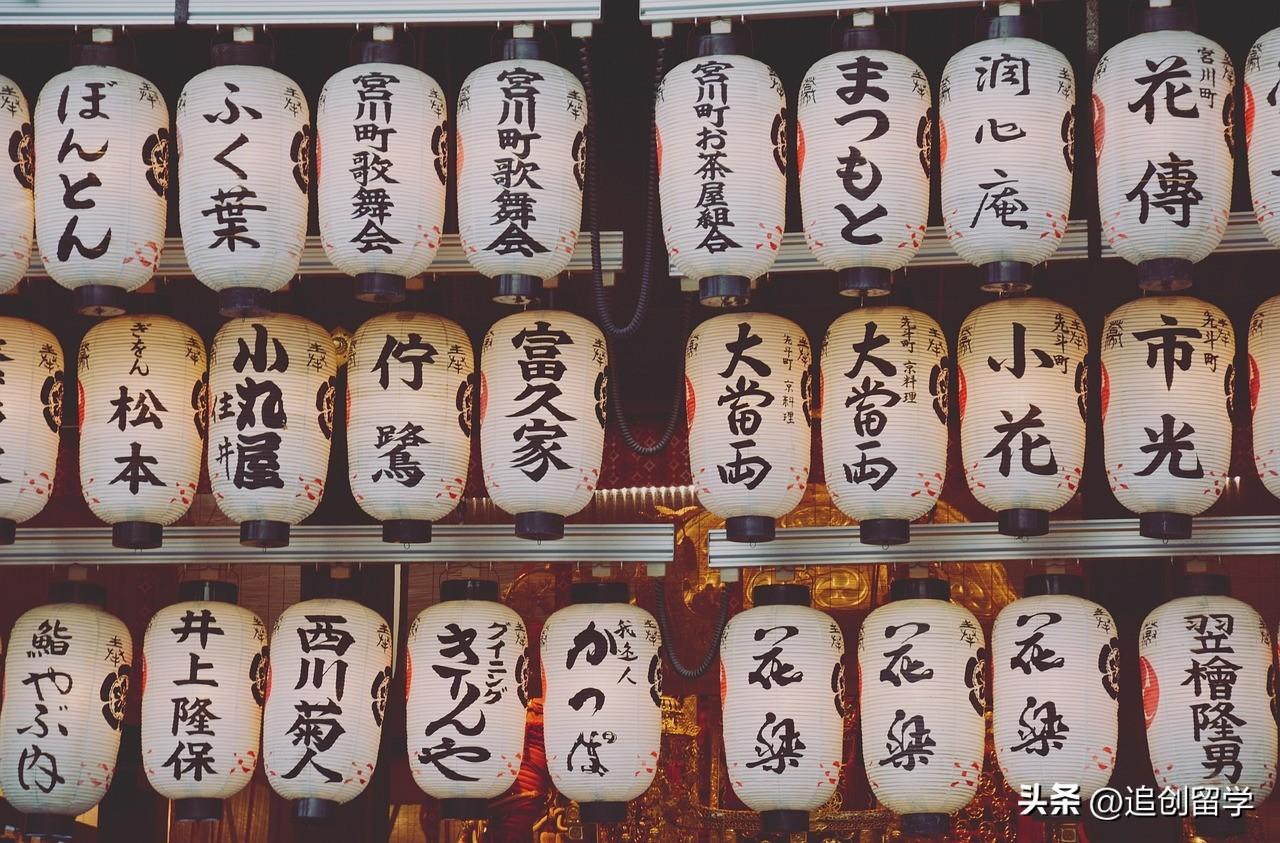 ぼんとん
ふく葉
宮川町歌舞会
宮川町歌舞会
宮川町お茶屋組合
まつもと
潤心庵
宮川町
花傳
ぎをん
松本
小丸屋
住井
佇鷺
富久家
先斗町 京料理
大當両
先斗町 京料理
大當両
先斗町
小花
先斗町
市光
鮨やぶ内
井上隆保
西川菊人
ダイニング
きりんや
かつ
花梁
花梁
花梁
翌檜隆男
头条 @追创留学